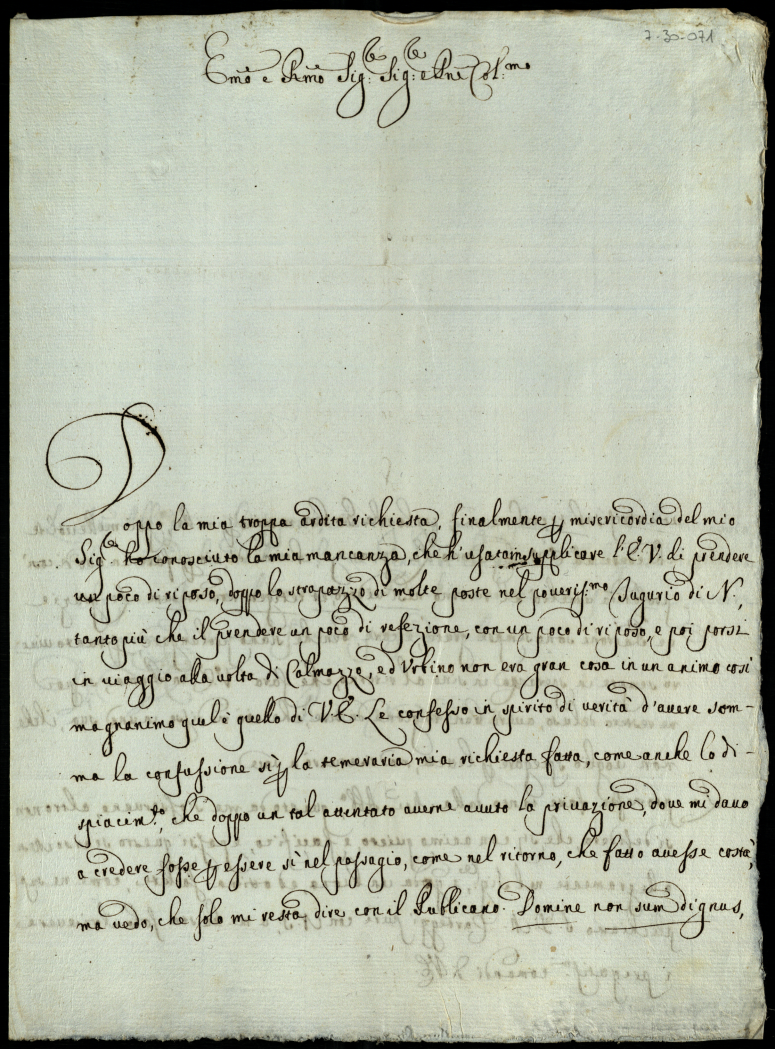 7-30-071
Emo e Rmo Sig:re Sig:re e Pne Col:mo
Doppo la mia troppa ardita richiesta, finalmente p misericordia del mio
Sig:re ho conosciuto la mia mancanza, che h'usata in supplicare l'E.V. di prendere
un poco di riposo, doppo lo strapazzo di molte poste nel poveriss:mo Tugurio di N.,
tanto più che il prendere un poco di refezione, con un poco di riposo, e poi porsi
in viaggio alla volta di Calmazzo, ed Urbino non era gran cosa in un animo così
magnanimo qual'è quello di V.E. Le confesso in spirito di verità d'avere som-
ma la confussione sì p la temeraria mia richiesta fatta, come anche lo di-
spiacim:to, che doppo un tal attentato averne avuto la privazione, dove mi davo
a credere fosse p essere sì nel passagio, come nel ritorno, che fatto avesse costà,
ma vedo, che solo mi resta dire con il Publicano. Domine non sum dignus,